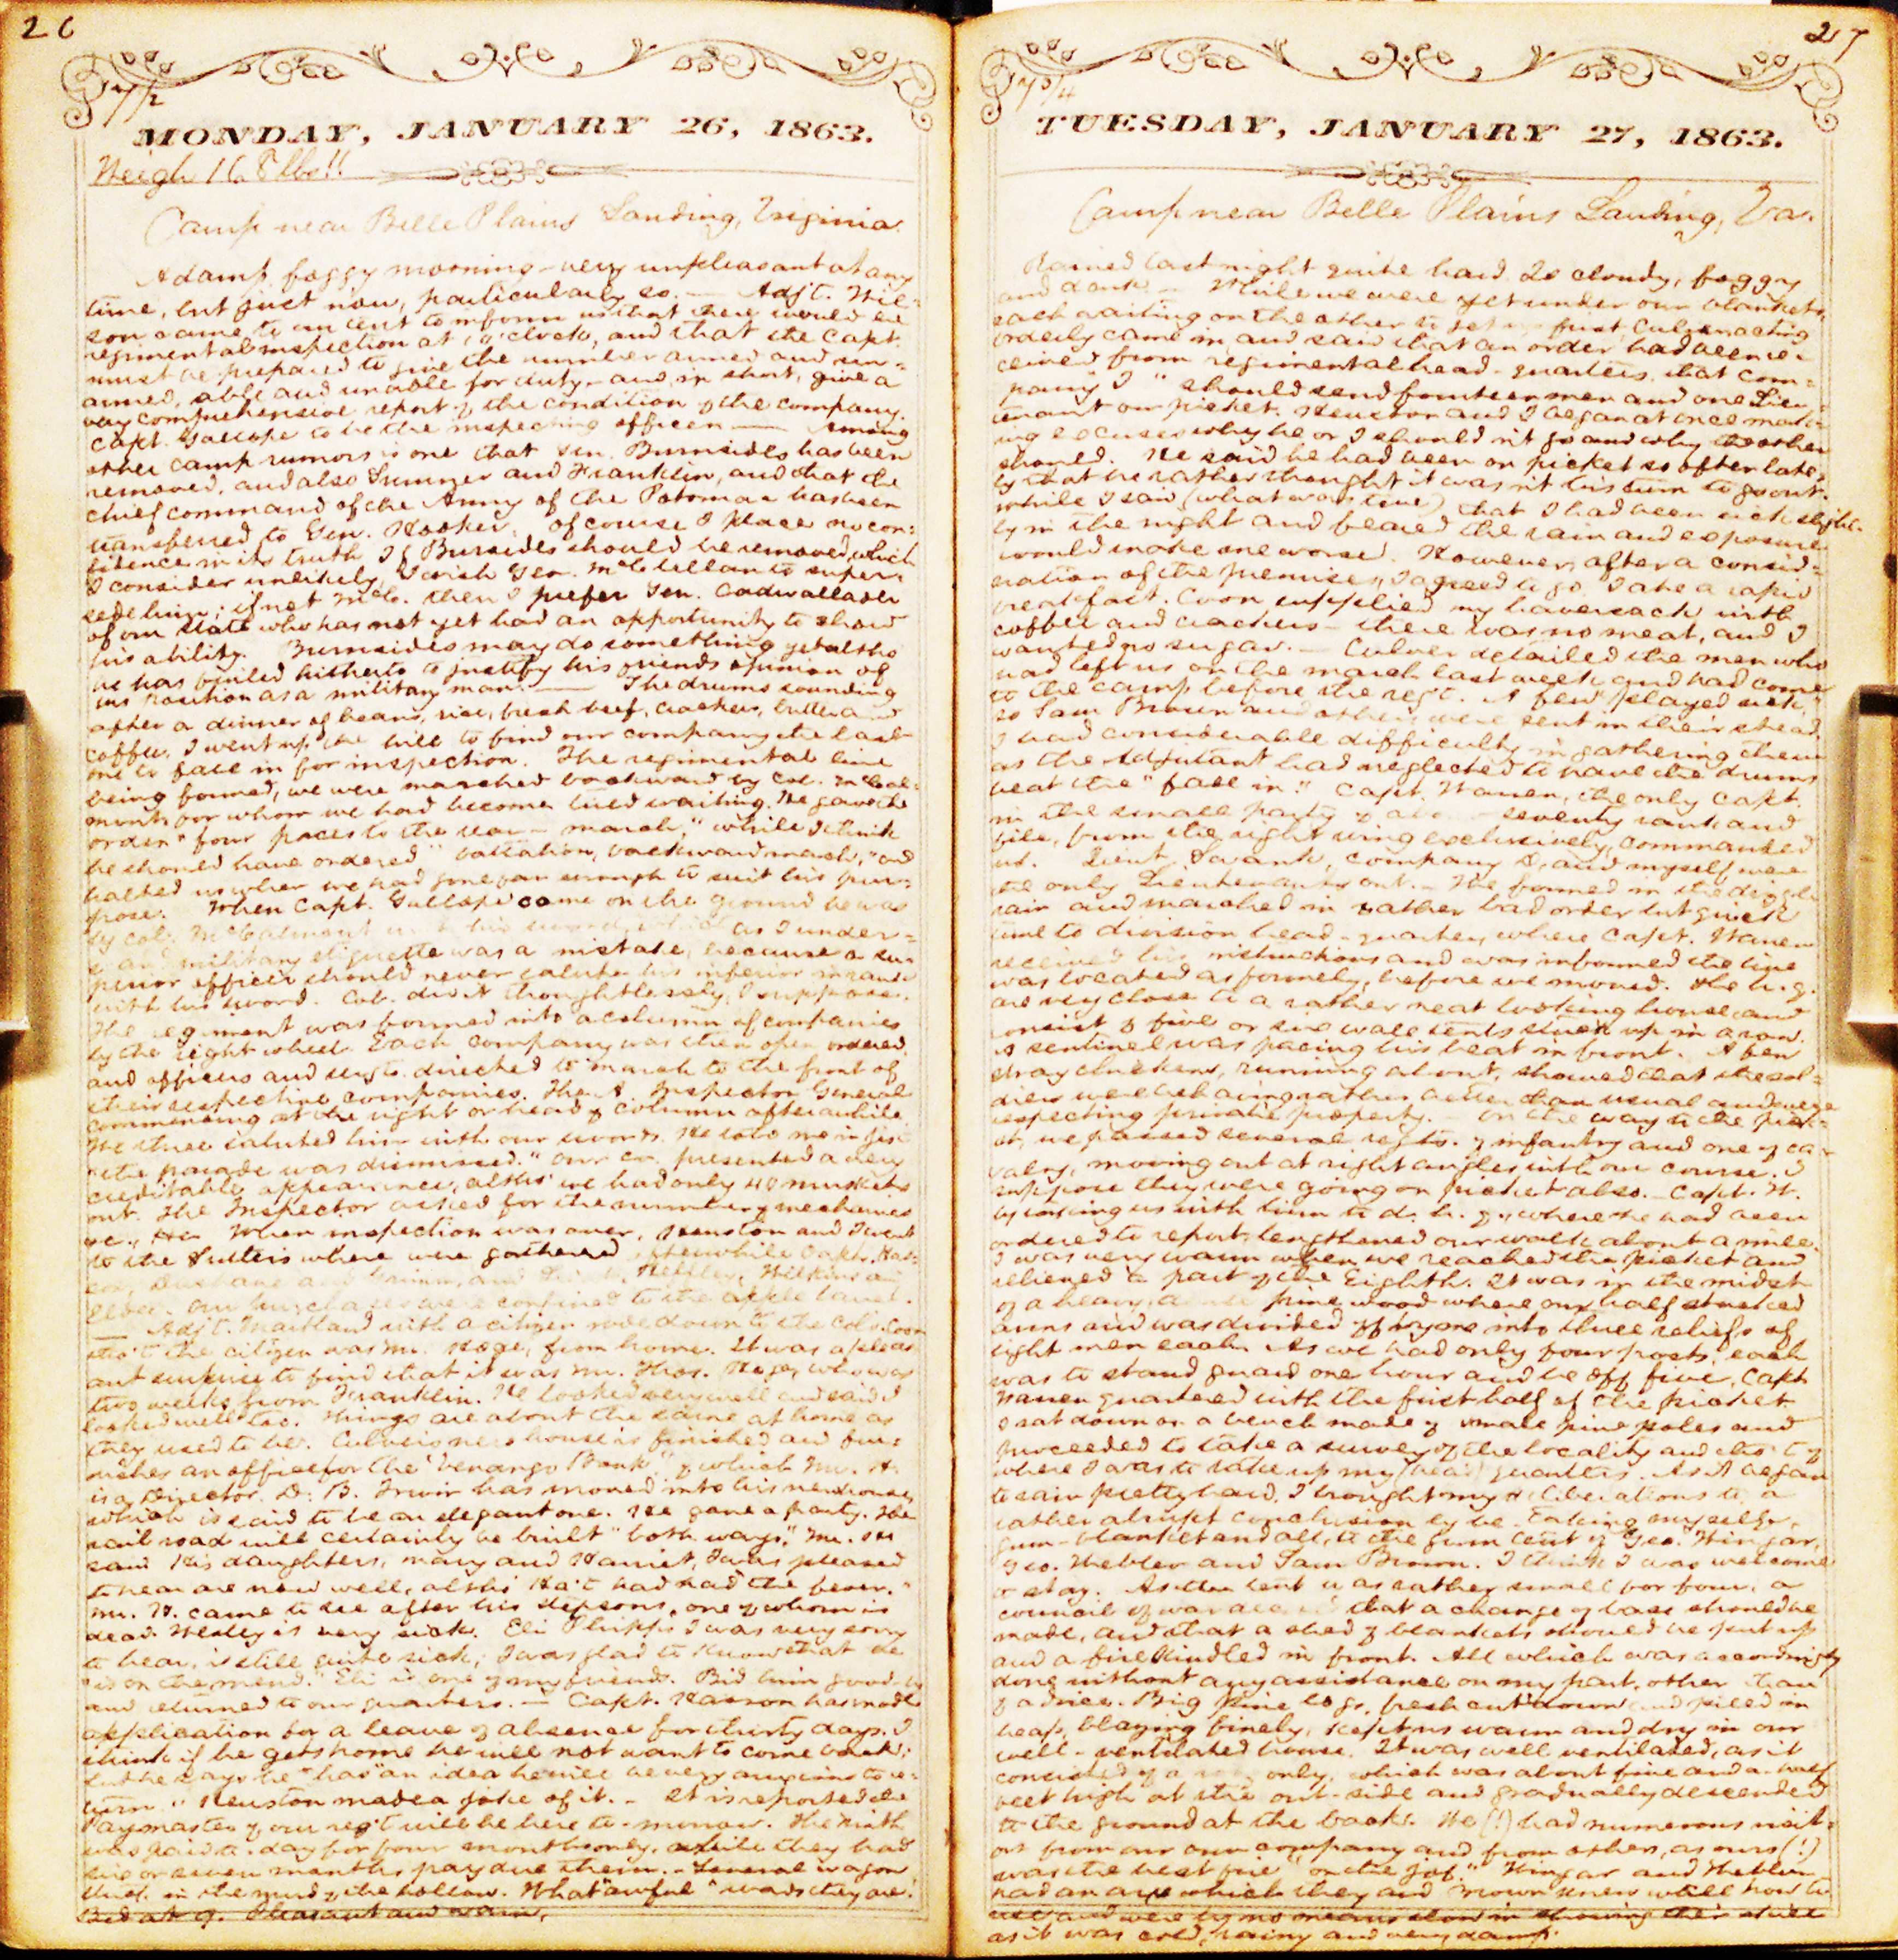 26
7 1/2
MONDAY, JANUARY 26, 1863.
Weigh 168 lbs!!
Camp near Belle Plains Landing, Virginia.
A damp foggy morning - very unpleasant at any
time, but just now, particularly so. — Adjt. Wil-
son came to our tent to inform us that there would be
regimental inspection at 1 o'clock, and that the Capt.
must be prepared to give the number armed and un-
armed, able and unable for duty - and, in short, give a
very comprehensive report of the condition of the company.
Capt. Gallope to be the inspecting officer — Among
other camp rumors is one that Gen. Burnsides has been
removed, and also Sumner and Franklin, and that the
chief command of the Army of the Potomac has been
transferred to Gen. Hooker. Of course I place no con-
fidence in its truth. If Bursides should be removed, which
I consider unlikely, I wish Gen. McClellan to super-
sede him; if not McC. then I prefer Gen. Cadwallader
of our State who has not yet had an opportunity to show
his ability. Burnsides may do something yet altho
he has failed hitherto to justify his friends opinion of
his position as a military man. — The drums sounding
after a dinner of beans, rice, fresh beef, crackers, butter and
coffee, I went up the hill to find our company the last
one to fall in for inspection. The regimental line
being formed, we were marched backward by Col. McCal-
mont, for whom we had become tired waiting. He gave the
order "four paces to the rear - march," while I think
he should have ordered "battalion, backward march," and
halted us when we had gone far enough to suit his pur-
pose. When Capt. Gallope came on the ground he was
by Col. McCalmont with his sword, which as I under-
stand military etiquette was a mistake, because a su-
perior officer should never salute his inferior in rank
with his sword. Col. did it thoughtlessly, I suppose.
The regiment was formed into a column of companies
by the right wheel. Each company was then open ordered
and officers and sergts. directed to march to the front of
their respective companies. The A. Inspector General
commencing at the right or head of column after awhile.
We three saluted him with our swords. He told me in jest
"the parade was dismissed." Our co. presented a very
creditable appearance, altho' we had only 40 muskets
out. The Inspector asked for the number of mechanics
&c., &c. When inspection was over, Heuston and I went
to the Sutlers where were gathered Capts. Has-
son, Dushane and Grimm, and Kelley, Wilkins and
Our purchases were confined to the apple barrel.
— Adjt. Maitland with a citizen rode down to the Col's. Coon
the citizen was Mr. Hoge, from home. It was a pleas-
ant surprise to find that it was Mr. Thos. Hoge, who was
two weeks from Franklin. He looked very well and said I
looked well too. Things are about the same at home as
they used to be. Culver's new house is finished and fur-
nishes an office for the "Venango Bank" of which Mr. H.
is a Director. D. B. Irwin has moved into his new house,
which is said to be an elegant one. He gave a party. The
rail road will certainly be built "both ways," Mr. H.
said. His daughters, Mary and Harriet, I was pleased
to hear are now well, altho' Hat had had "the fever."
Mr. H. came to see after his stepsons, one of whom is
dead. Wesley is very sick. Eli Phipps I was very sorry
to hear, is still quite sick; I was glad to know that he
"is on the mend." Eli is one of my friends. Bid him good-by
and returned to our quarters. — Capt. Hasson has made
application for a leave of absence for thirty days. I
think if he gets home he will not want to come back;
but he says he "has" an idea he will be very anxious to re-
turn." Heuston made a joke of it. - It is reported the
Paymaster of our reg't will be here to-morrow. The Ninth
was paid to-day for four months only, while they had
six or seven months pay due them. - Several wagons
stuck in the mud of the hollow. What "awful" roads they are!
Bed at 9. Pleasant and warm.
27
7 3/4
TUESDAY, JANUARY 27, 1863.
Camp near Belle Plains Landing, Va.
Rained last night quite hard. Is cloudy, foggy
and dark. — While we were yet under our blankets,
each waiting on the other to get up first, Culver acting
orderly came in and said that an order had been re-
ceived from regimental head-quarters that Com-
pany "I" should send fourteen men and one Lieu-
tenant on picket. Heuston and I began at once mak-
ing excuses why he or I should n't go and why the other
should. He said he had been on picket so often late-
ly that he rather thought it was n't his turn to go out,
while I said (what was true) that I had been sick slight-
ly in the night and feared the rain and exposure
would make me worse. However, after a consid-
eration of the premises, I agreed to go. I ate a rapid
breakfast. Coon supplied my haversack with
coffee and crackers - there was no meat, and I
wanted no sugar. — Culver detailed the men who
had left us on the march last week and had come
to the camp before the regt. A few "played sick,"
so Sam Brown and others were sent in their stead.
I had considerable difficulty in gathering them
as the Adjutant had neglected to have the drums
beat the "fall in." Capt. Warren, the only Capt.
in the small party of seventy rank and
file, from the right wing exclusively, commanded
us. Lieut. Company D, and myself were
the only Lieutenants out. - We formed in the drizzle
rain and marched in rather bad order but quick
time to division head-quarters, where Capt. Warren
received his instructions and was informed the line
was located as formerly, before we moved. The h. q.
are very close to a rather neat looking house and
consist of five or six wall tents stuck up in a row.
A sentinel was pacing his beat in front. A few
stray chickens, running about, showed that the sol-
diers were behaving rather better than usual and were
respecting private property. — On the way to the pick-
et, we passed several regts. of infantry and one of ca-
valry, moving out at right angles with our course. I
suppose they were going on picket also. - Capt. W.
by taking us with him to d. h. q., where he had been
ordered to report, lengthened our walk about a mile.
I was very warm when we reached the picket and
relieved a part of the Eighth. It was in the midst
of a heavy, pine wood where our half stacked
arms and was divided off by me into three reliefs of
eight men each. As we had only four posts, each
was to stand guard one hour and be off five. Capt.
Warren quartered with the first half of the picket.
I sat down on a bench made of small pine poles and
proceeded to take a survey of the locality and
where I was to take up my (head) quarters. As it began
to rain pretty hard, I brought my deliberations to a
rather abrupt conclusion by be-taking myself,
gum-blanket and all, to the gum tent of Geo. Wingar,
Geo. Hebler and Sam Brown. I think I was welcome
to stay. As the tent was rather small for four, a
council of war that a change of base should be
made, and that a shed of blankets should be put up
and a fire kindled in front. All which was accordingly
done without any assistance on my part, other than
of advice. Big pine logs, fresh cut down and piled in
heap, blazing finely, kept us warm and dry in our
well-ventilated house. It was well ventilated, as it
consisted of a only, which was about five and a half
feet high at the out-side and gradually descended
to the ground at the back. We (!) had numerous visit-
ors from our own company and from others, as ours (!)
was the best fire "on the job." Wingar and Hebler
had an axe which they and Brown knew well how to
use and were by no means slow in showing their skill
as it was cold, rainy and very damp.